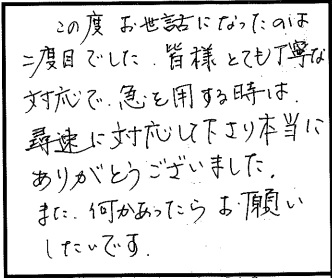 この度 お世話になったのは
二度目でした. 皆様 とても丁寧な
対応で. 急を用する時は.
尋速に対応して下さり本当に
ありがとうございました.
また. 何かあったら お願い
したいです.